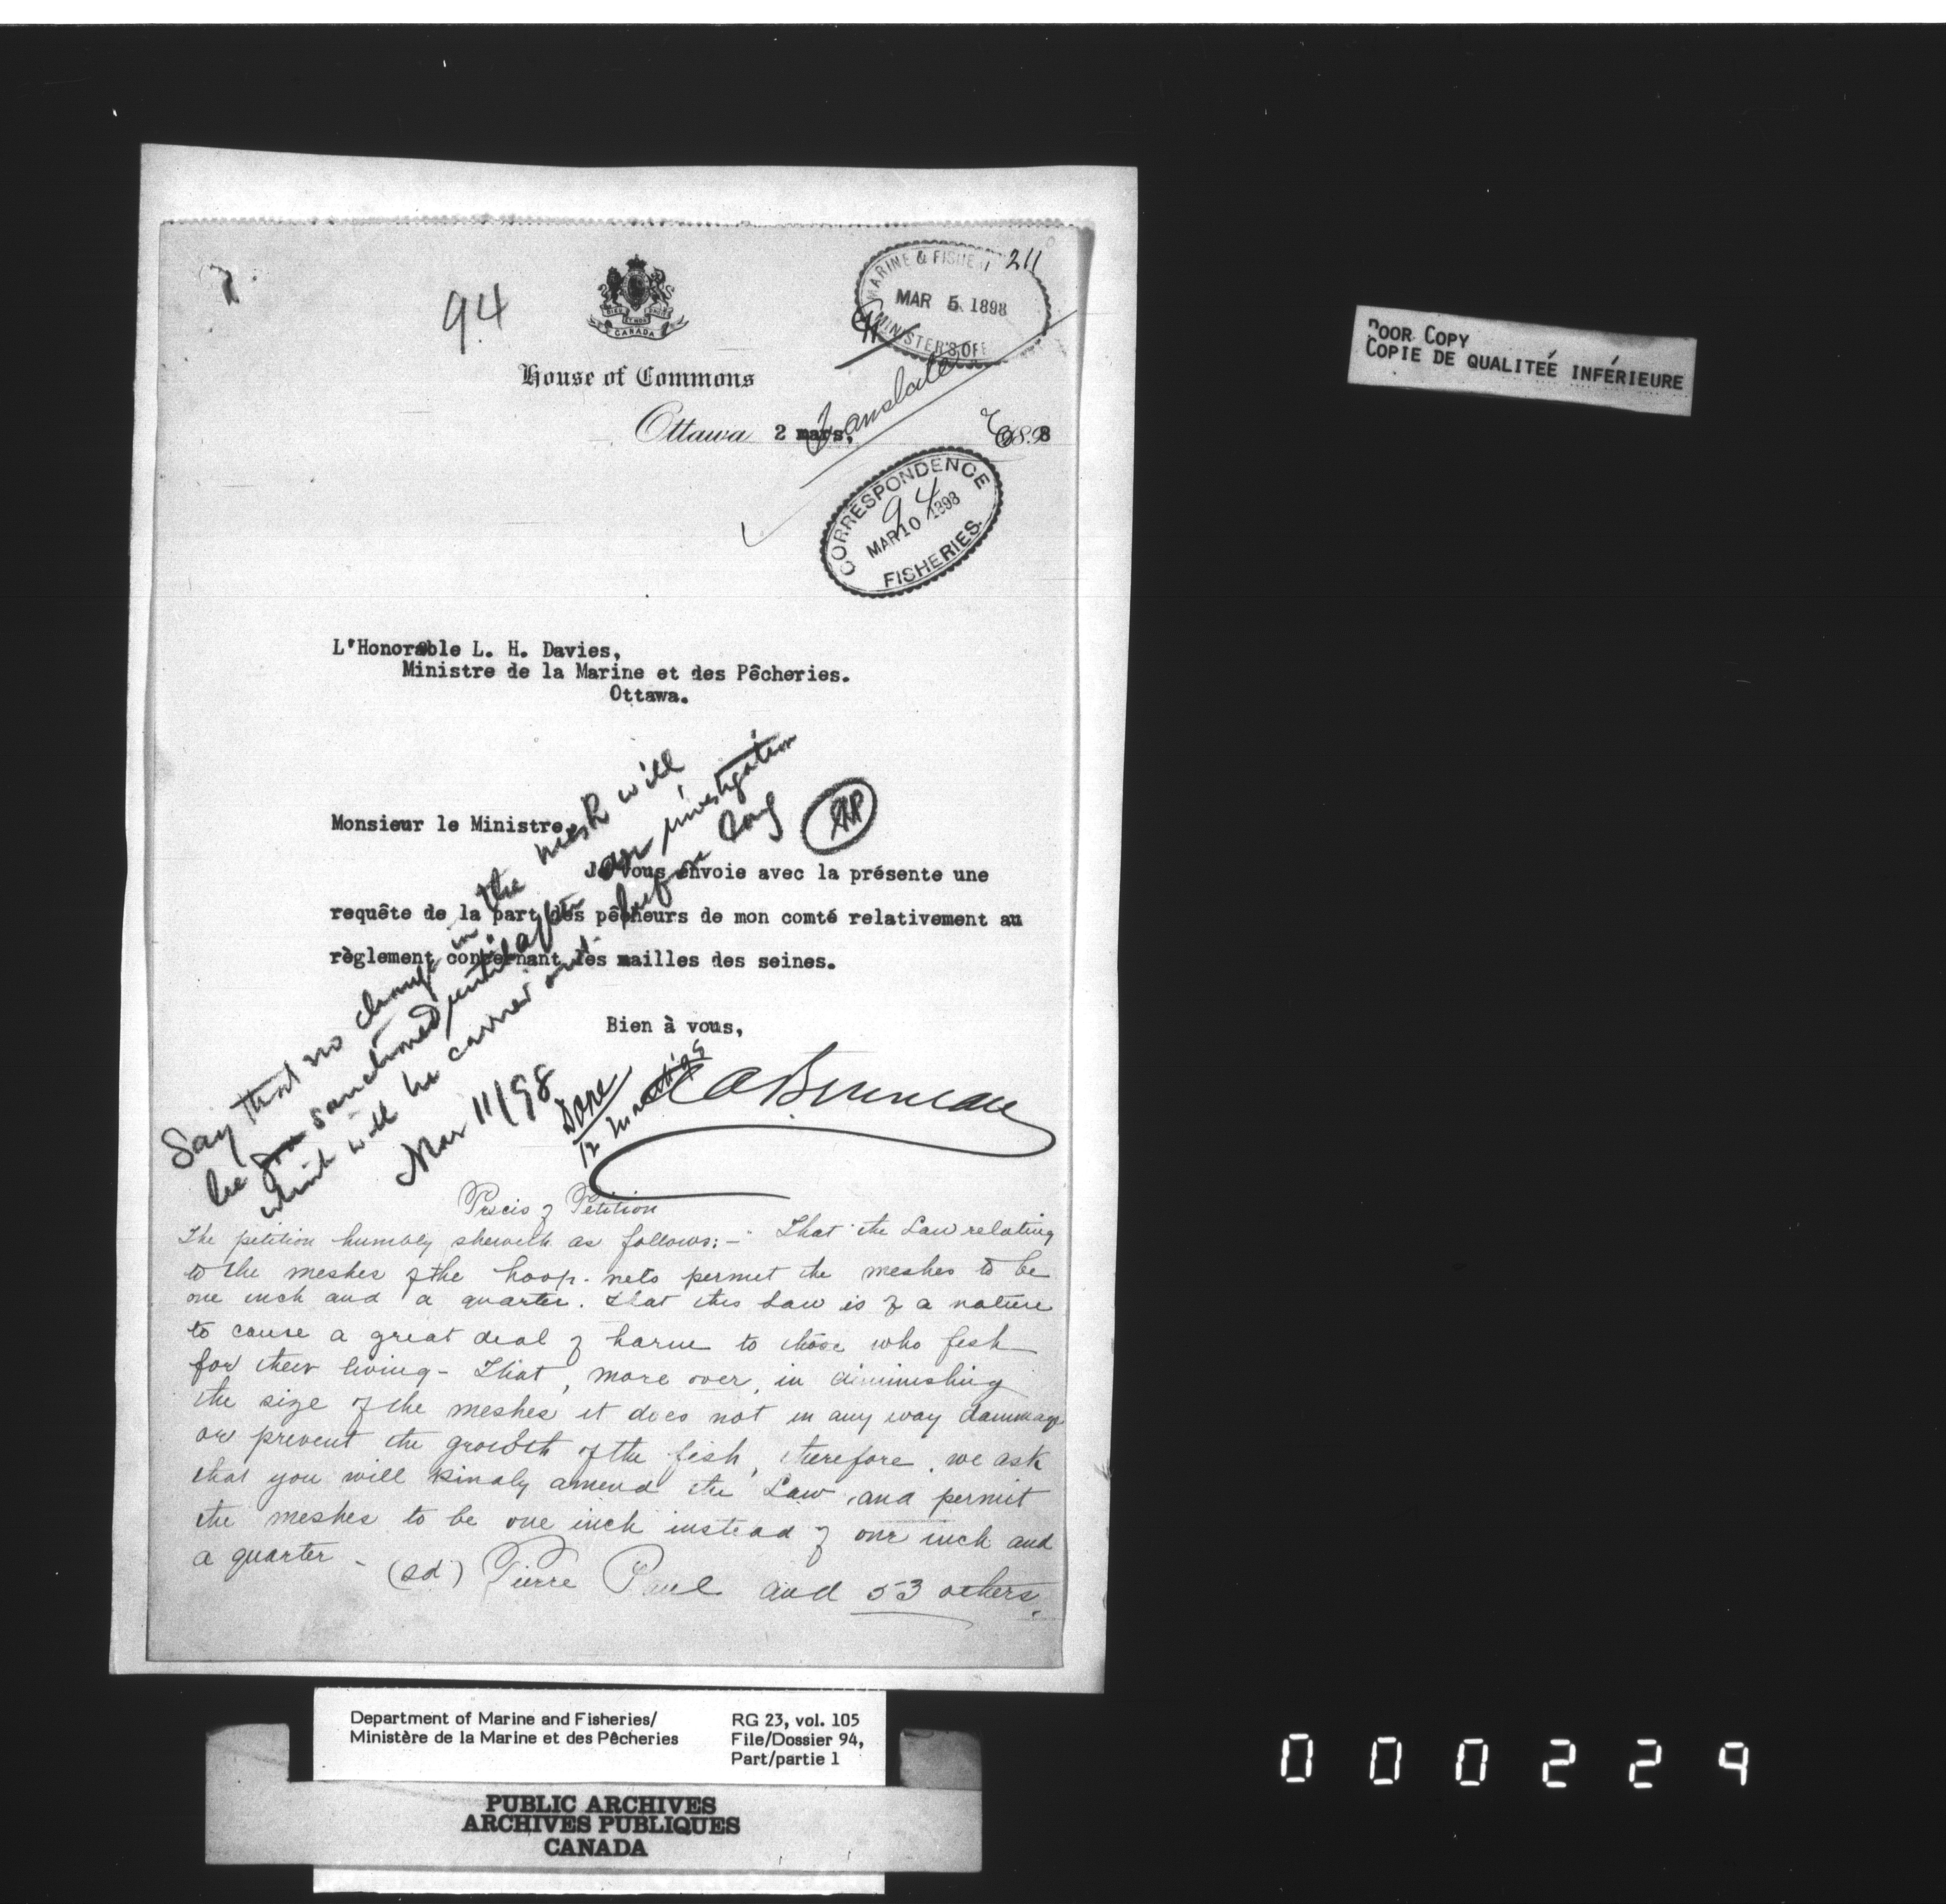 94
CANADA
MARINE & FISHE
211
MAR 5 1898
MINISTER'S OF
House of Commons
Translate
Ottawa 2 mars, 1898
CORRESPONDENCE
94
MAR 10 1898
FISHERIES.
POOR COPY
COPIE DE QUALITEÉ INFÉRIEURE
L'Honorable L. H. Davies,
Ministre de la Marine et des Pêcheries.
Ottawa.
Monsieur le Ministre,
Je vous envoie avec la présente une
requête de la part des pêcheurs de mon comté relativement au
règlement concernant les mailles des seines.
Bien à vous,
A A Bruneau
Say that no change in the mesh will
be sanctioned until after an investigation
which will be carried out before long
Mar 11/98
Done
12
Précis of Petition
The petition humbly sheweth as follows:— "That the Law relating
to the meshes of the hoop-nets permit the meshes to be
one inch and a quarter. That this Law is of a nature
to cause a great deal of harm to those who fish
for their living - That, more over, in diminishing
the size of the meshes it does not in any way dammage
or prevent the growth of the fish, therefore, we ask
that you will kindly amend the Law, and permit
the meshes to be one inch instead of one inch and
a quarter -
(sd) Pierre Paul and 53 others.
Department of Marine and Fisheries/
Ministère de la Marine et des Pêcheries
RG 23, vol. 105
File/Dossier 94,
Part/partie 1
PUBLIC ARCHIVES
ARCHIVES PUBLIQUES
CANADA
000229